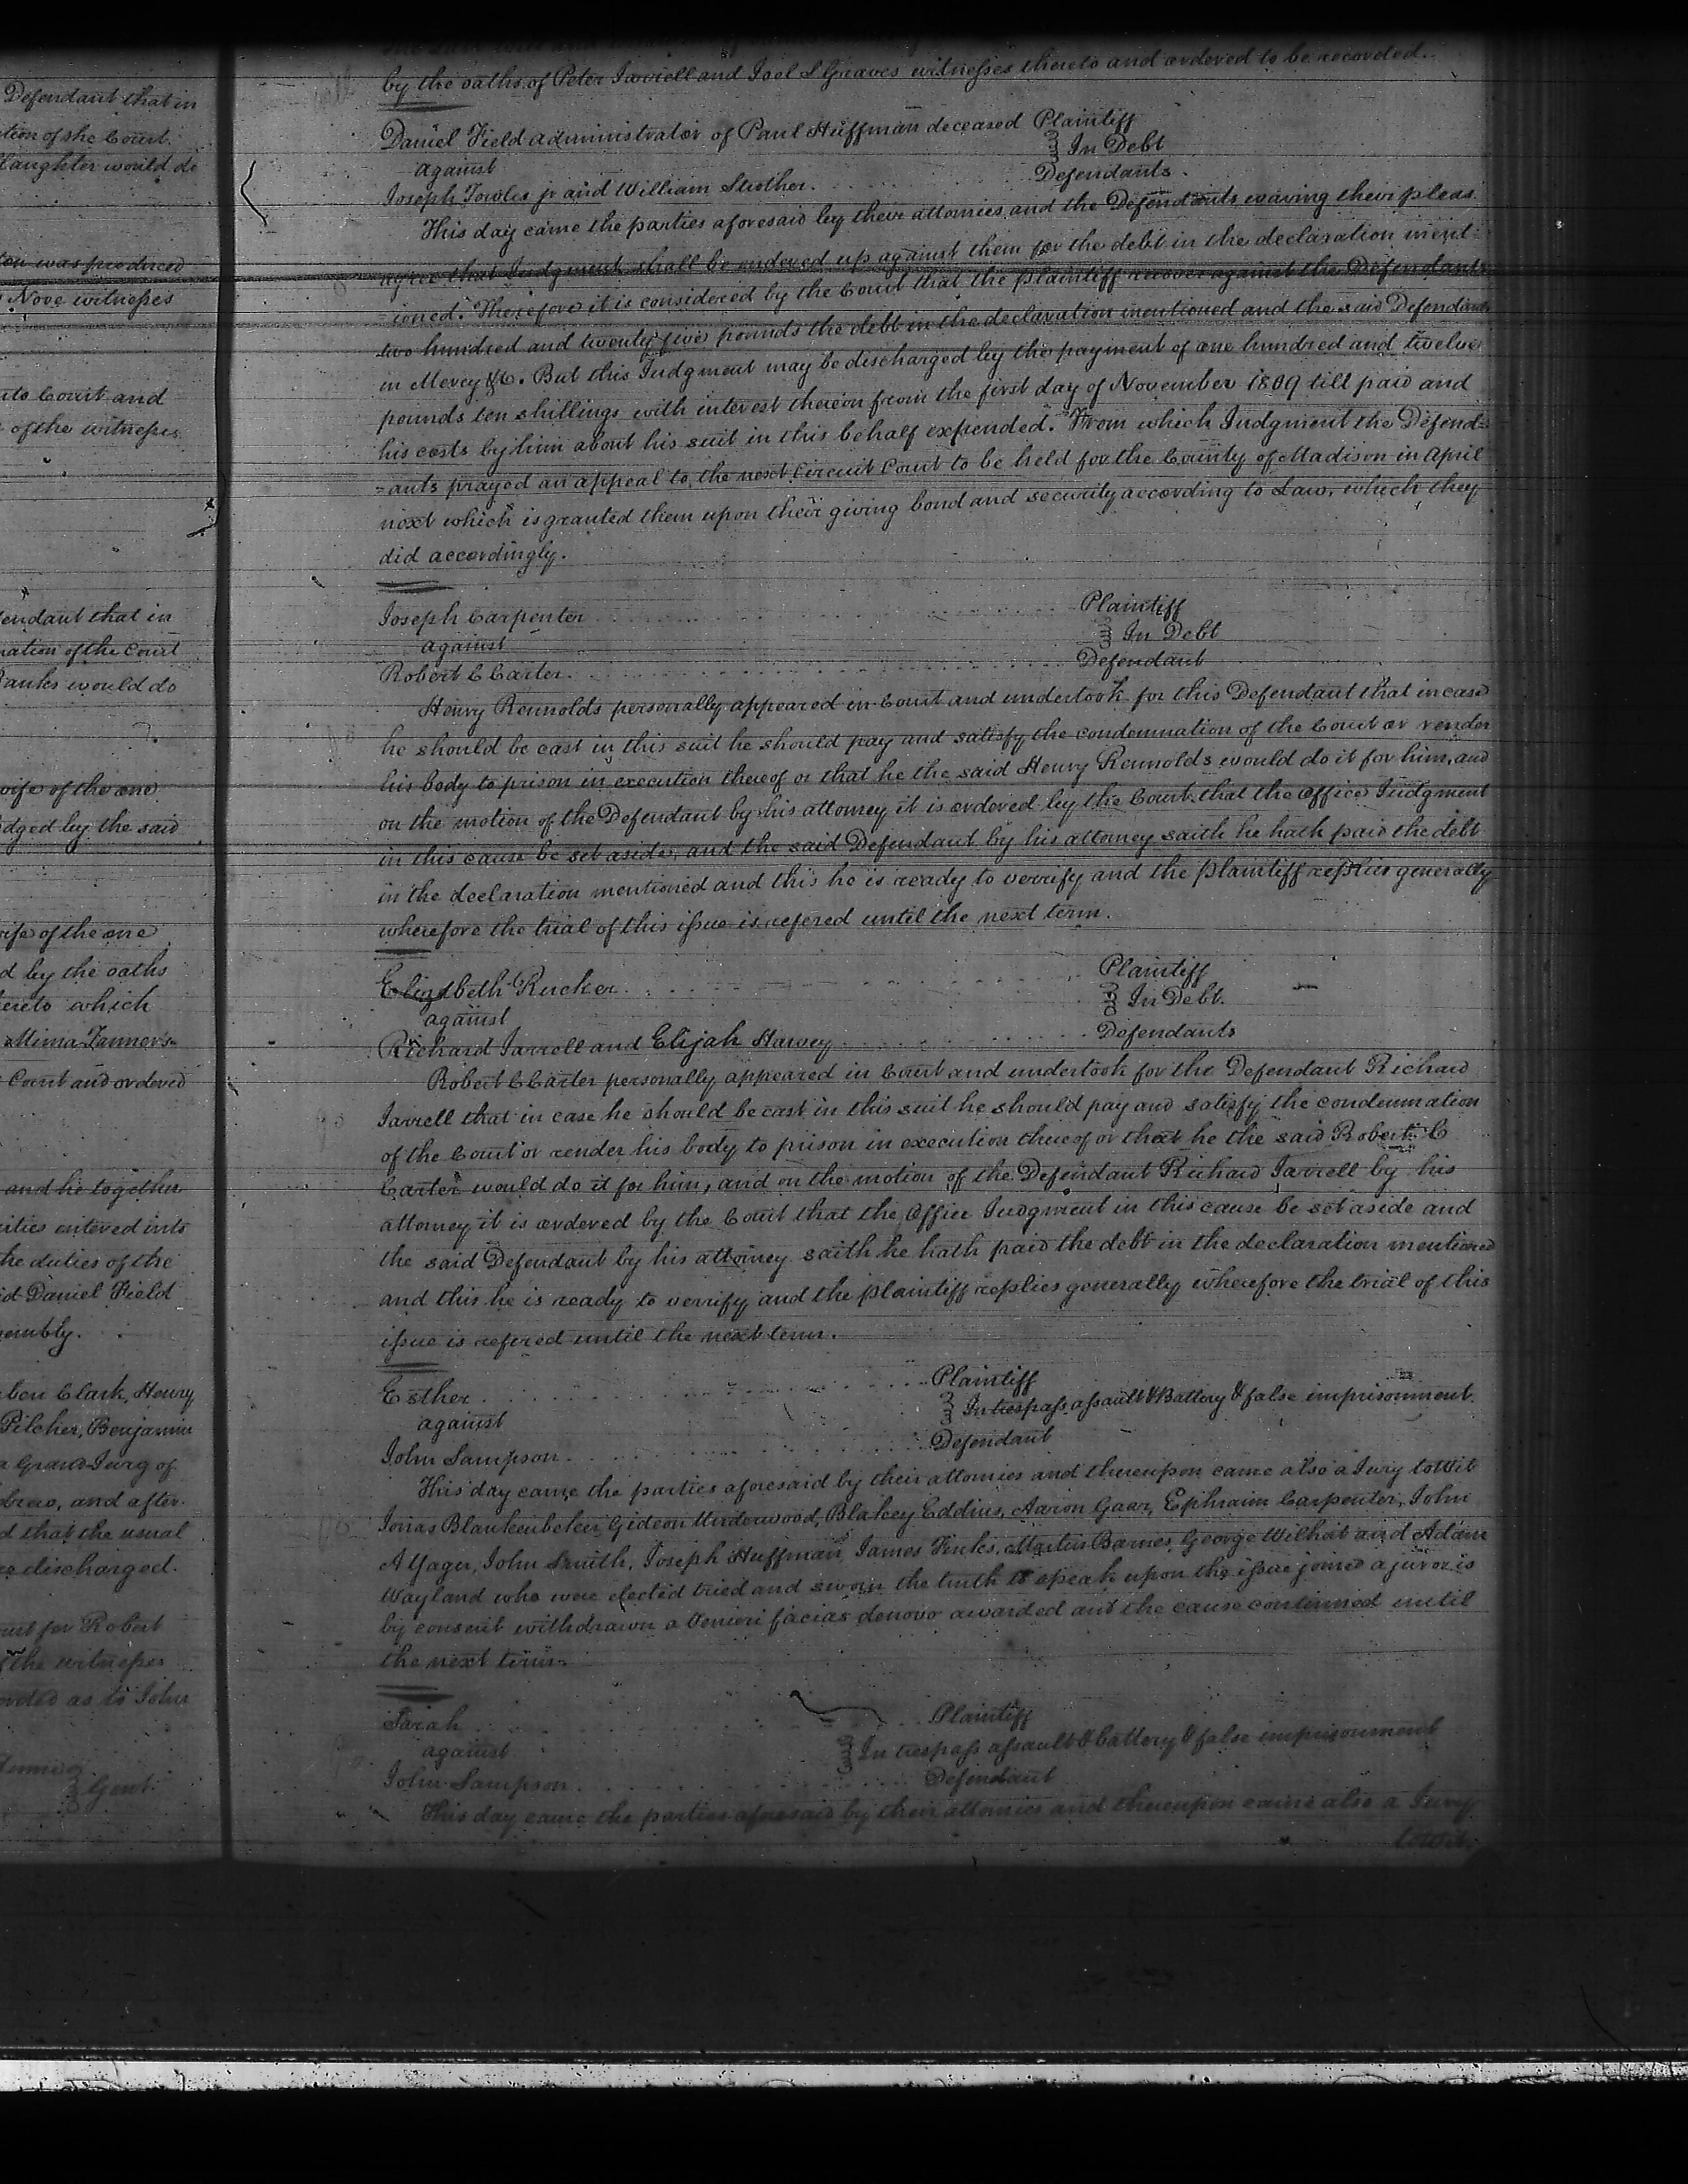 Defendant that in
tion of the Court
laughter would do
ton was produced
Nove witnesses
into Court and
of the witnesses
fendant that in
nation of the Court
Banks would do
wife of the one
dged by the said
wife of the one
d by the oaths
hereto which
Mima Tanner's
Court and ordered
and he together
rities entered into
the duties of the
id Daniel Field
sembly.
ben Clark, Henry
Pilcher, Benjamin
a Grand Jury of
drew, and after
d that the usual
re discharged.
urt for Robert
of the witnesses
orded as to John
Gent.
by the oaths of Peter Jarrell and Joel S Graves witnesses thereto and ordered to be recorded.
Daniel Field administrator of Paul Huffman deceased Plaintiff
against In Debt
Joseph Towles jr and William Strother. Defendants.
This day came the parties aforesaid by their attornies and the Defendants waving their pleas
agree that Judgment shall be endered up against them for the debt in the declaration ment-
-ioned. Therefore it is considered by the Court that the plaintiff recover against the Defendants
two hundred and twenty five pounds the debt in the declaration mentioned and the said Defendants
in Mercy &C. But this Judgment may be discharged by the payment of one hundred and twelve
pounds ten shillings with interest thereon from the first day of November 1809 till paid and
his costs by him about his suit in this behalf expended. From which Judgment the Defend-
-ants prayed an appeal to the next Circuit Court to be held for the County of Madison in April
next which is granted them upon their giving bond and security according to Law, which they
did accordingly.
Joseph Carpenter Plaintiff
against In Debt
Robert C Carter. Defendant
Henry Reunolds personally appeared in Court and undertook for this Defendant that in case
he should be cast in this suit he should pay and satisfy the condemnation of the Court or render
his body to prison in execution thereof or that he the said Henry Reunolds would do it for him, and
on the motion of the Defendant by his attorney it is ordered by the Court that the office Judgment
in this cause be set aside, and the said Defendant by his attorney saith he hath paid the debt
in the declaration mentioned and this he is ready to verrify and the plaintiff replies generally
wherefore the trial of this issue is refered until the next term.
Elizabeth Rucker Plaintiff
against In Debt.
Richard Jarrell and Elijah Harvey Defendants
Robert C Carter personally appeared in Court and undertook for the Defendant Richard
Jarrell that in case he should be cast in this suit he should pay and satisfy the condemnation
of the Court or render his body to prison in execution thereof or that he the said Robert C
Carter would do it for him, and on the motion of the Defendant Richard Jarrell by his
attorney it is ordered by the Court that the Office Judgment in this cause be set aside and
the said Defendant by his attorney saith he hath paid the debt in the declaration mentioned
and this he is ready to verrify and the plaintiff replies generally wherefore the trial of this
issue is refered until the next term.
Esther Plaintiff
against In trespass assault & Battery & false imprisonment.
John Sampson. Defendant
This day came the parties aforesaid by their attornies and thereupon came also a Jury towit
Jonas Blankenbeker, Gideon Underwood, Blakey Eddins, Aaron Gaar, Ephraim Carpenter, John
A Yager, John Smith, Joseph Huffman, James Finks, Martin Barnes, George Wilhoit and Adam
Wayland who were elected tried and sworn the truth to speak upon the issue joined a juror is
by consent withdrawn a Venieri facias denovo awarded and the cause continued until
the next term.
Sarah Plaintiff
against In trespass assault & battery & false imprisonment
John Sampson. Defendant
This day came the parties aforesaid by their attornies and thereupon came also a Jury
towit